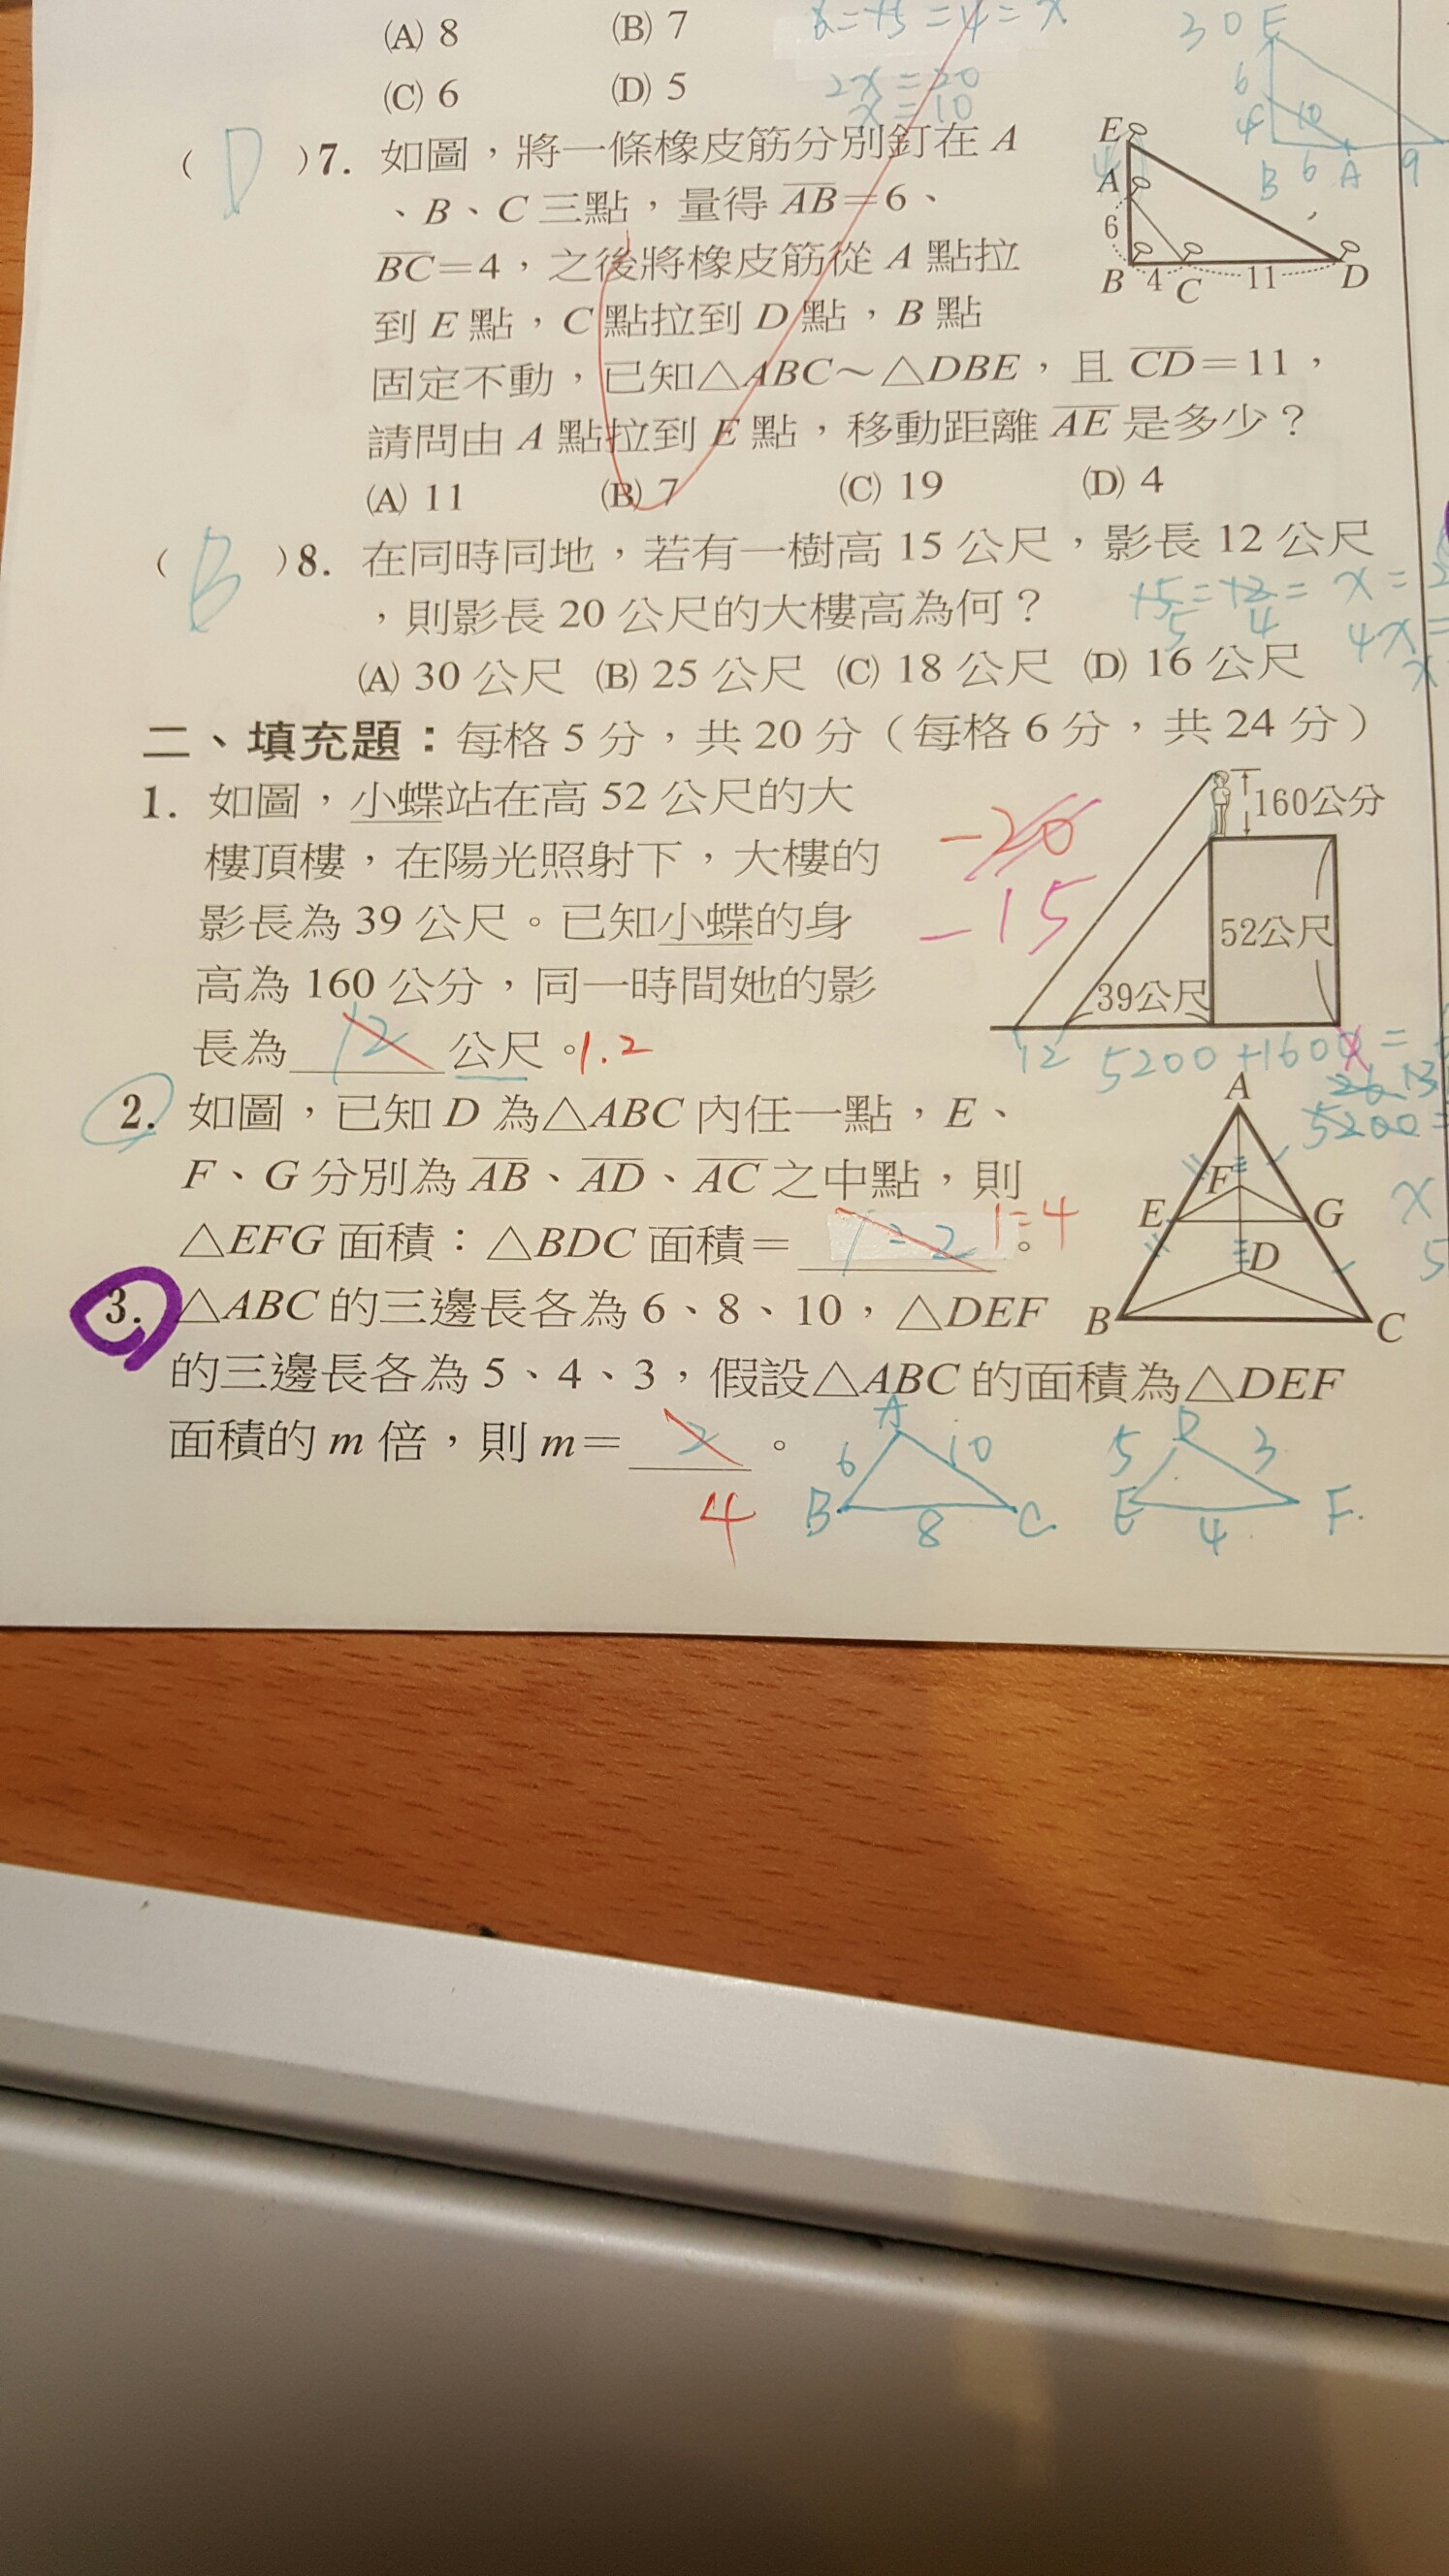 (A) 8 (B) 7
(C) 6 (D) 5
2x=20
x=10
30 E
6
4 10
B 6 A 9
( D )7. 如圖，將一條橡皮筋分別釘在 A
、B、C 三點，量得 AB=6、
BC=4，之後將橡皮筋從 A 點拉
到 E 點，C 點拉到 D 點，B 點
固定不動，已知△ABC～△DBE，且 CD=11，
請問由 A 點拉到 E 點，移動距離 AE 是多少？
(A) 11 (B) 7 (C) 19 (D) 4
E
A
6
B 4 C 11 D
( B )8. 在同時同地，若有一樹高 15 公尺，影長 12 公尺
，則影長 20 公尺的大樓高為何？
(A) 30 公尺 (B) 25 公尺 (C) 18 公尺 (D) 16 公尺
二、填充題：每格 5 分，共 20 分（每格 6 分，共 24 分）
1. 如圖，小蝶站在高 52 公尺的大
樓頂樓，在陽光照射下，大樓的
影長為 39 公尺。已知小蝶的身
高為 160 公分，同一時間她的影
長為 12 公尺。1.2
-20
-15
160公分
52公尺
39公尺
12 5200
2. 如圖，已知 D 為△ABC 內任一點，E、
F、G 分別為 AB、AD、AC 之中點，則
△EFG 面積：△BDC 面積＝ 1:2 。 1:4
A
F
E G
D
B C
3. △ABC 的三邊長各為 6、8、10，△DEF
的三邊長各為 5、4、3，假設△ABC 的面積為△DEF
面積的 m 倍，則 m＝ 2 。
4
A
6 10
B 8 C
D
5 3
E 4 F